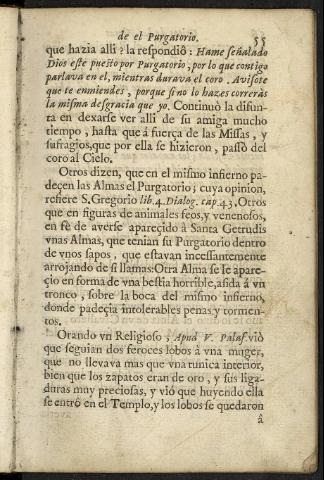 de el Purgatorio. 55
que hazia alli? la respondiò: Hame señalado
Dios este puesto por Purgatorio, por lo que contigo
parlava en el, mientras durava el coro. Avisote
que te enmiendes, porque sino lo hazes correràs
la misma desgracia que yo. Continuò la difun-
ta en dexarse ver alli de su amiga mucho
tiempo, hasta que á fuerça de las Missas, y
sufragios, que por ella se hizieron, passò del
coro al Cielo.
Otros dizen, que en el mismo infierno pa-
deçen las Almas el Purgatorio; cuya opinion,
refiere S. Gregorio lib. 4. Dialog. cap. 43, Otros
que en figuras de animales feos, y venenosos,
en fè de averse apareçido à Santa Getrudis
vnas Almas, que tenian su Purgatorio dentro
de vnos sapos, que estavan incessantemente
arrojando de si llamas: Otra Alma se le apare-
çio en forma de vna bestia horrible, asida á vn
tronco, sobre la boca del mismo infierno,
donde padeçia intolerables penas, y tormen-
tos.
Orando vn Religioso; Apud V. Palaf. viò
que seguian dos feroces lobos à vna muger,
que no llevava mas que vna tunica interior,
bien que los zapatos eran de oro, y sus liga-
duras muy preciosas, y viò que huyendo ella
se entrò en el Templo, y los lobos se quedaron
â